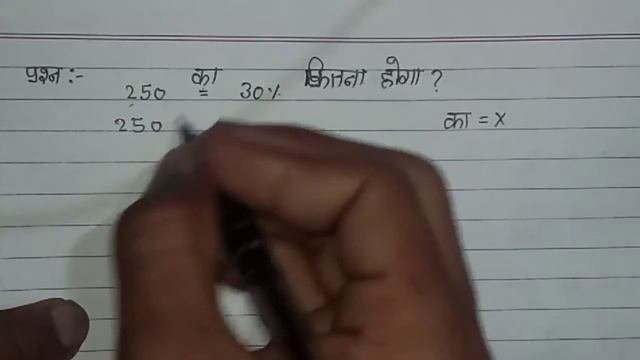 प्रश्न :- 250 का 30% कितना होगा ?
250 का = x